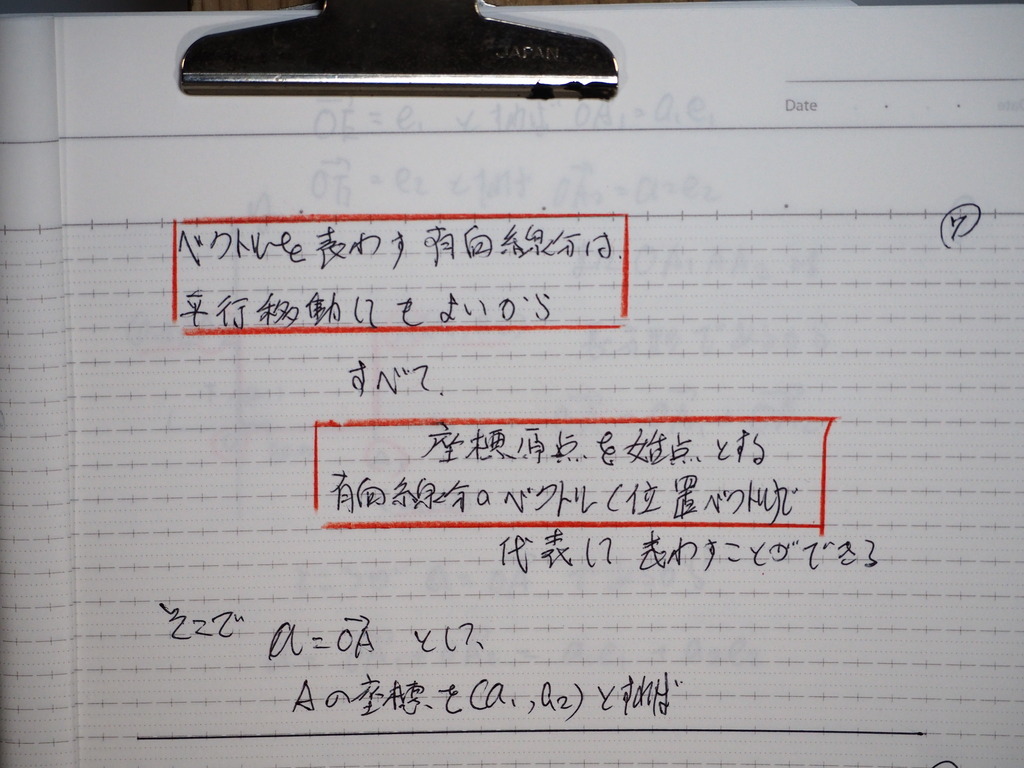 JAPAN
Date
ウ
ベクトルを表わす有向線分は、
平行移動してもよいから
すべて、
座標原点を始点とする
有向線分のベクトル(位置ベクトル)で
代表して表わすことができる
そこで a=OA→ として、
Aの座標を(a₁,a₂)とすれば